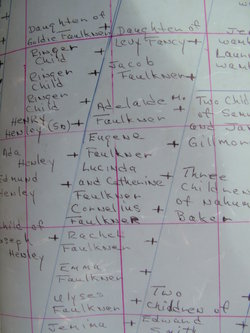 Daughter of
Goldie Faulkner
Ringer
Child
Ringer
Child
Ringer
Child
HENRY
Henley (Sr)
Ada
Henley
Edmund
Henley
Child of
Joseph
Henley
Daughter of
Levy Fancy +
+ Jacob
Faulkner +
+
+ Adelaide M.
+ Faulkner +
Eugene
+ Faulkner
Lucinda
+ and Catherine
Faulkner
+ Cornelius
Faulkner +
+ Rachel
Faulkner +
Emma
Faulkner +
Ulyses
Faulkner +
Jemima +
Two Child
of Sam
and Ja
Gillmor
Three
Children
of Nahum
Baker
Two
Children of
Edward